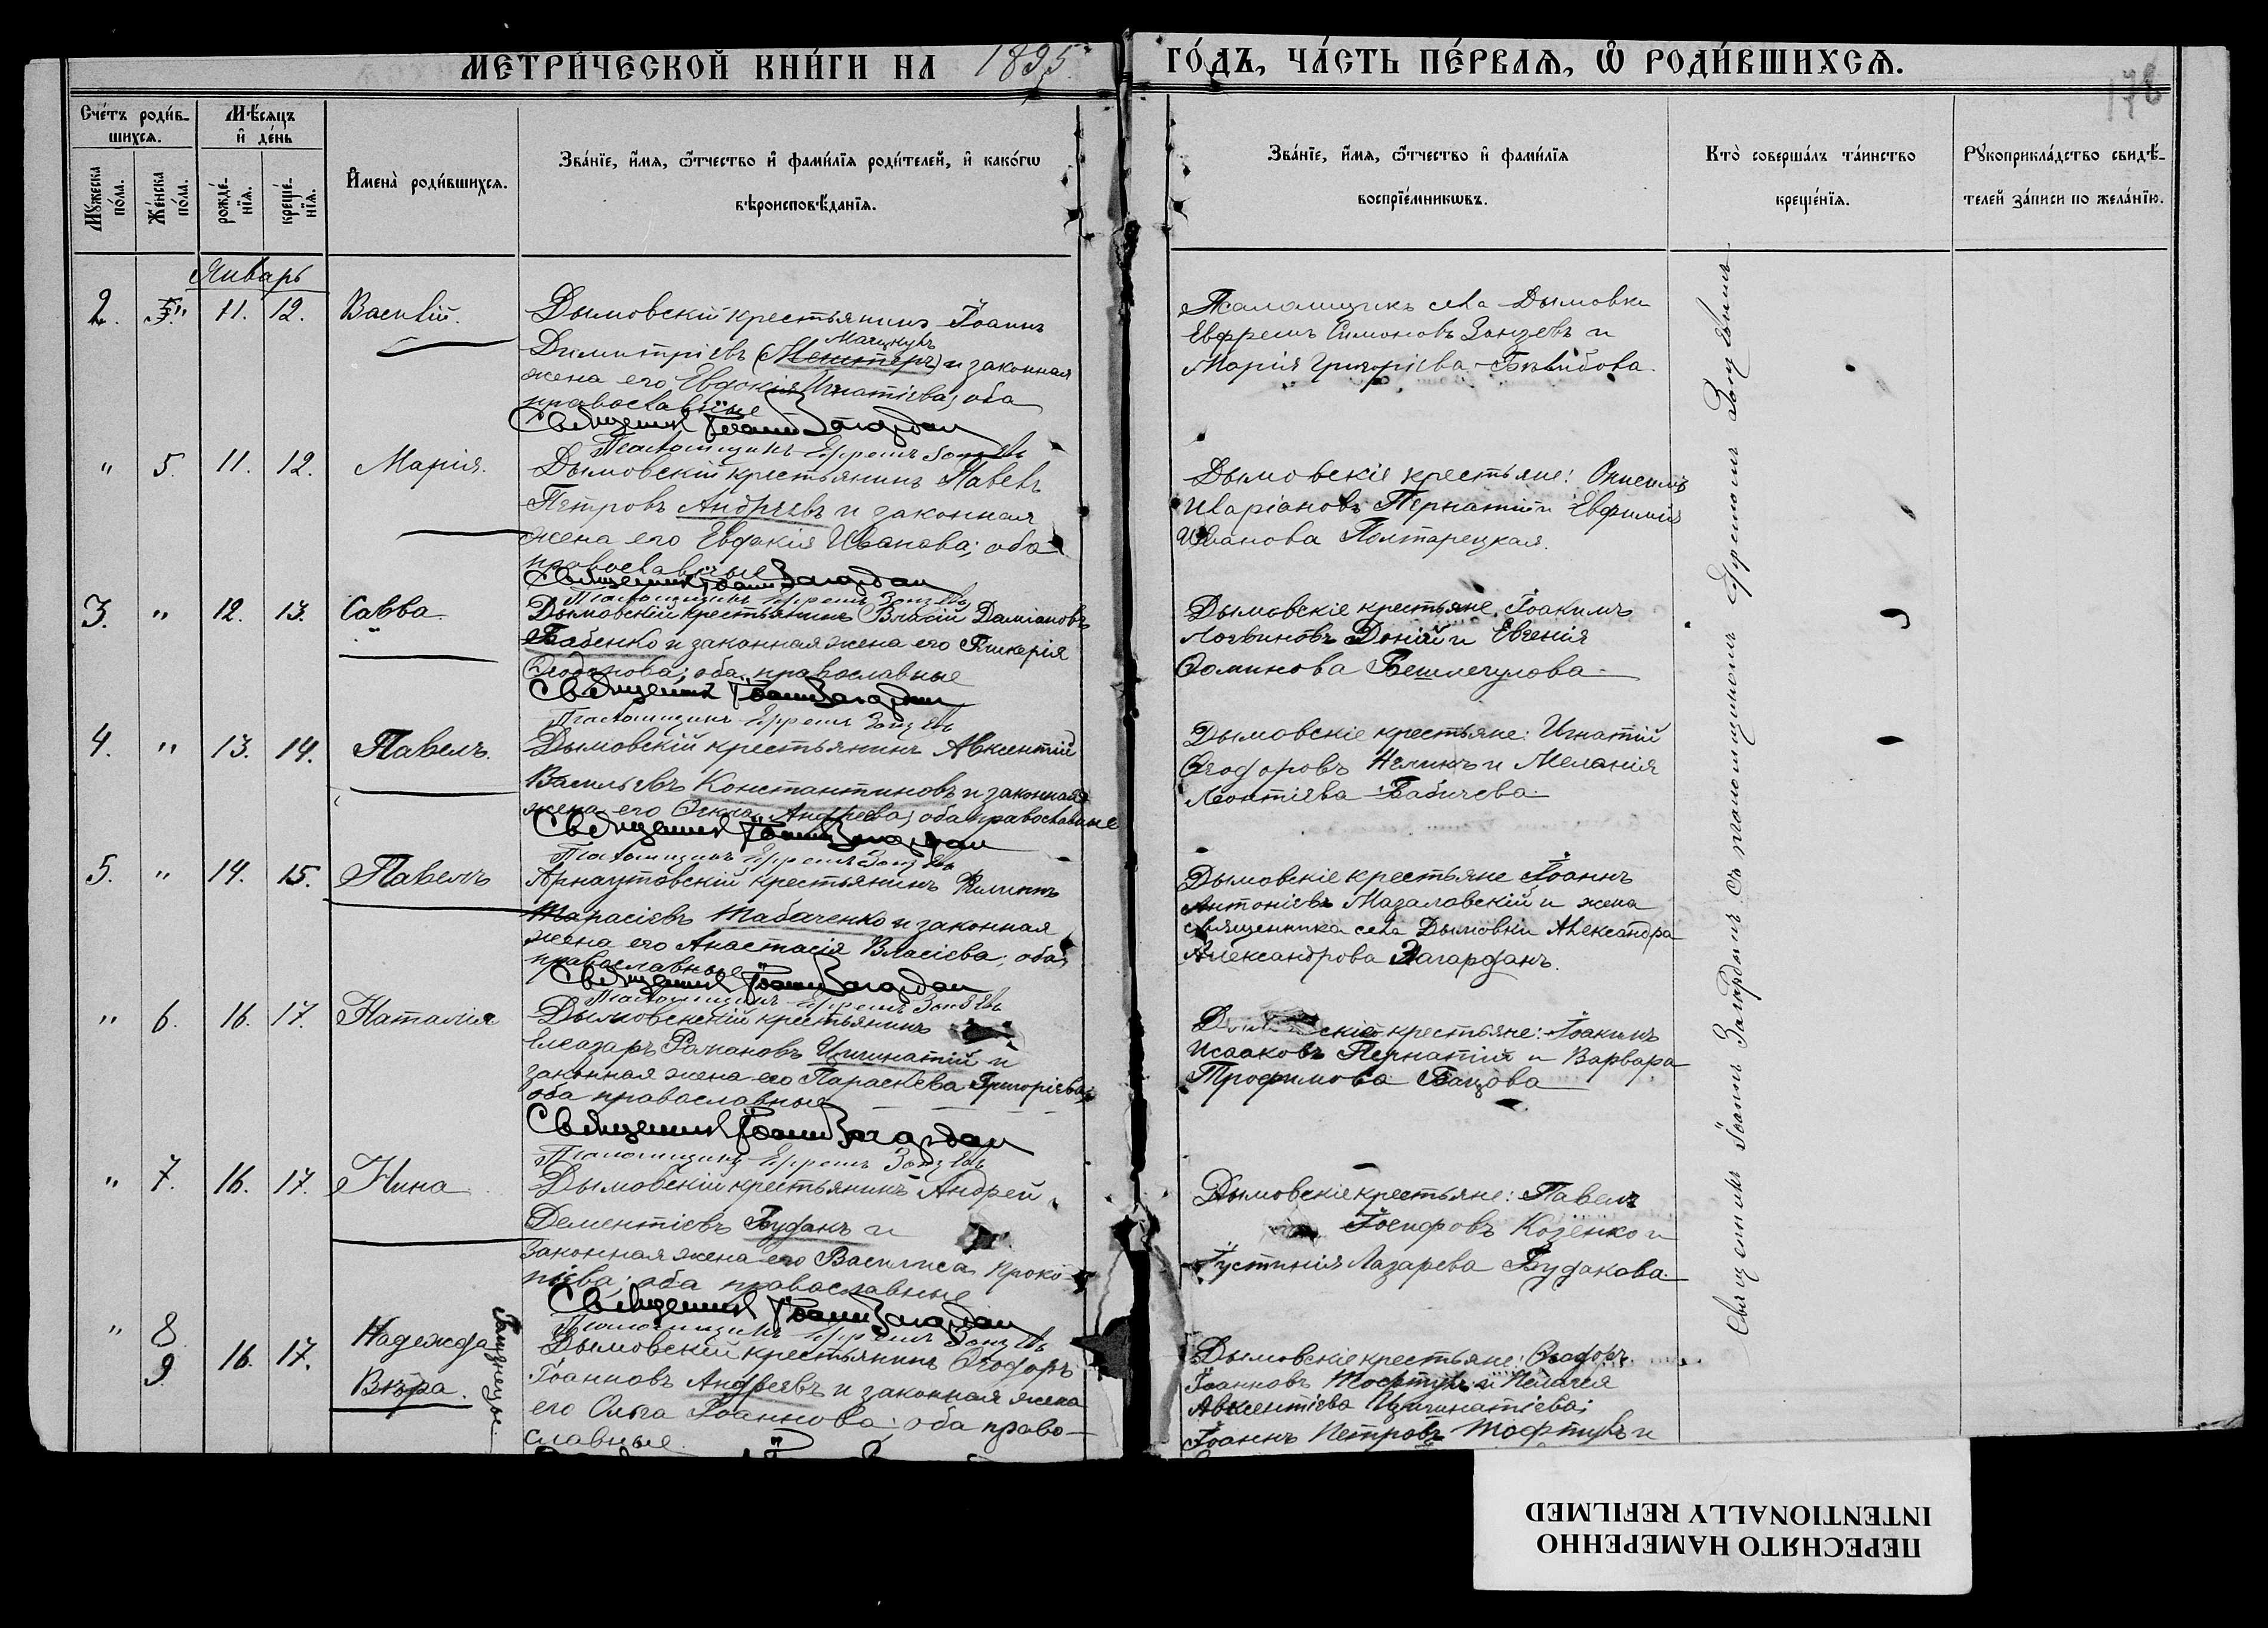 МЕТРИ́ЧЕСКОЙ КНИ́ГИ НА 1895.
ГО́ДЪ, ЧА́СТЬ ПЕ́РВАѦ, Ѡ҆ РОДИ́ВШИХСѦ.
178
Сче́тъ роди́в-
шихсѧ.
Мѣ́сѧцъ
и҆ де́нь
Мꙋ́жеска
по́ла.
Же́нска
по́ла.
рожде́-
нїѧ.
креще́-
нїѧ.
И҆мена̀ роди́вшихсѧ.
Зва́нїе, и҆́мѧ, ѻ҆́тчество и҆ фами́лїѧ роди́телей, и҆ како́гѡ
вѣроисповѣ́данїѧ.
Зва́нїе, и҆́мѧ, ѻ҆́тчество и҆ фами́лїѧ
воспрїе́мникѡвъ.
Кто̀ соверша́лъ та́инство
креще́нїѧ.
Рꙋкоприкла́дство свидѣ́-
телей за́писи по жела́нїю.
Январь
2. " 11. 12. Василій.
Дымовскій крестьянинъ Іоаннъ
Димитріевъ и законная
жена его Евдокія Игнатіева; оба
православные
Священникъ Іоаннъ Загардан
Псаломщикъ Ефремъ Зонзевъ
Псаломщикъ села Дымовки
Евфремъ Симоновъ Зонзевъ и
Марія Григоріева
" 5. 11. 12. Марія.
Дымовскій крестьянинъ Павелъ
Петровъ Андреевъ и законная
жена его Евдокія Иванова; оба
православные
Священникъ Іоаннъ Загардан
Псаломщикъ Ефремъ Зонзевъ
Дымовскіе крестьяне: Онисимъ
Иларіановъ Пернатій и Евфимія
Иванова Полтарецкая.
3. " 12. 13. Савва
Дымовскій крестьянинъ Власій Даміановъ
Бабенко и законная жена его Гликерія
Ѳеодорова; оба православные
Священникъ Іоаннъ Загардан
Псаломщикъ Ефремъ Зонзевъ
Дымовскіе крестьяне Іоакимъ
Логвиновъ Доній и Евгенія
Ѳоминова Бешлегулова
4. " 13. 14. Павелъ.
Дымовскій крестьянинъ Авксентій
Васильевъ Константиновъ и законная
жена его Андреева; оба православные
Священникъ Іоаннъ Загардан
Псаломщикъ Ефремъ Зонзевъ
Дымовскіе крестьяне: Игнатій
Ѳеодоровъ и Меланія
Леонтіева Бабичева
5. " 14. 15. Павелъ
Арнаутовскій крестьянинъ Филиппъ
Тарасіевъ Табаченко и законная
жена его Анастасія Власіева; оба
православные
Священникъ Іоаннъ Загардан
Псаломщикъ Ефремъ Зонзевъ
Дымовскіе крестьяне Іоаннъ
Антоніевъ Мазаловскій и жена
священника села Дымовки Александра
Александрова Загарданъ.
" 6. 16. 17. Наталія
Дымовскій крестьянинъ
Елеазаръ Романовъ Цыгинатій и
законная жена его Параскева Григоріева;
оба православные
Священникъ Іоаннъ Загардан
Псаломщикъ Ефремъ Зонзевъ
Дымовскіе крестьяне: Іоакимъ
Исааковъ Пернатій и Варвара
Трофимова Бацова
" 7. 16. 17. Нина
Дымовскій крестьянинъ Андрей
Дементіевъ Буданъ и
законная жена его Василиса Проко-
піева; оба православные
Священникъ Іоаннъ Загардан
Псаломщикъ Ефремъ Зонзевъ
Дымовскіе крестьяне: Павелъ
Іосифовъ Козенко и
Іустинія Лазарева Будакова
" 8 9. 16. 17. Надежда
Вѣра.
Близнецы.
Дымовскій крестьянинъ Ѳеодоръ
Іоанновъ Андреевъ и законная жена
его Ольга Іоаннова; оба право-
славные.
Дымовскіе крестьяне: Ѳеодоръ
Іоанновъ Тофтулъ и Пелагея
Авксентіева Цыгинатіева;
Іоаннъ Петровъ Тофтулъ и
Священникъ Іоаннъ Загарданъ съ псаломщикомъ Ефремомъ Зонзевымъ
ПЕРЕСНЯТО НАМЕРЕННО
INTENTIONALLY REFILMED